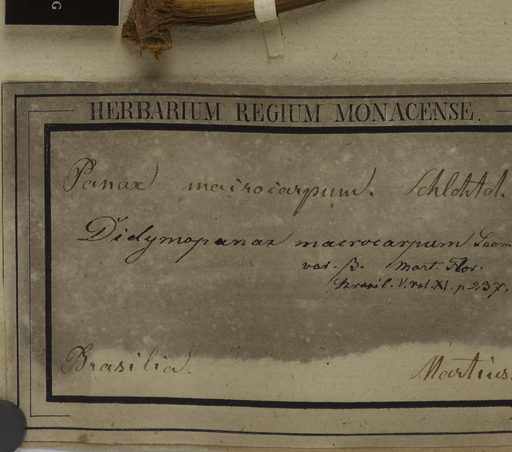 HERBARIUM REGIUM MONACENSE.
Panax macrocarpum. Schlchtd.
Didymopanax macrocarpum Seem
var. β. Mart. Flor.
Brasil. V. vol. XI. p. 237.
Brasilia. Martius.